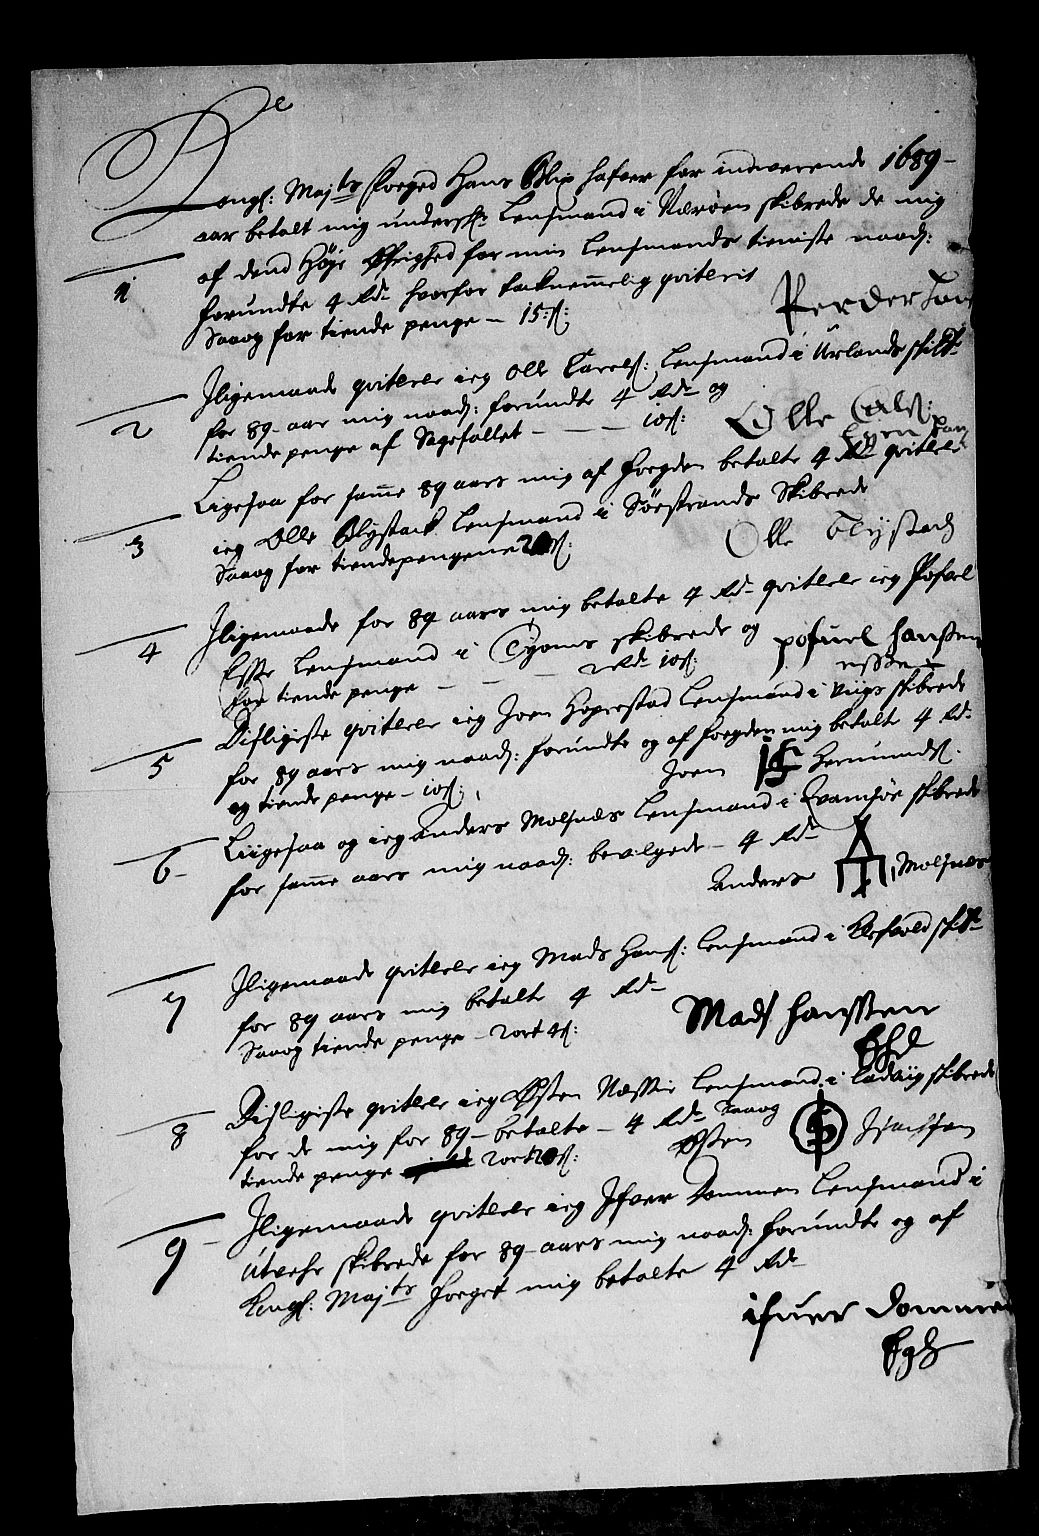 Kongl: Maj:ts Foeged Hans Blix hafver for indewerende 1689
aar betalt mig underschr: Lensmand i Nærøen skibrede de mig
af dend Høje Øfrighed for min Lensmands tieniste naads:
1
forundte 4 Rd: hvorfor tacknemmelig qviteris
Saaog for tiende penge – 15 s:
Perder
2
Iligemaade qviterer ieg Olle Carels: Lensmand i Urlands skibr:
for 89 aar mig naads: forundte 4 Rd: og
tiende penge af Sagefallet – – – 10 s:
Olle
3
Ligesaa for samme 89 aars mig af fogden betalte 4 Rd: qviterer
ieg Olle Flystack Lensmand i Søestrands Skibrede
Saaog for tiendepengene
Olle Flÿstach
4
Iligemaade for 89 aars mig betalte 4 Rd: qviterer ieg Pofvel
Esse Lensmand i Tyoms skibrede og
for tiende penge – – – 2 Rd: 10 s:
pofuel hanssen
esse
5
Disligeste qviterer ieg Joen Hoperstad Lensmand i Viigs skibrede
for 89 aars mig naads: forundte og af foegden mig betalt 4 Rd:
og tiende penge – 10 s:
Joen Hermunds:
6
Liigesaa og ieg Anders Molsnæs Lensmand i Evamsøe skibrede
for samme aars mig naads: bevilgede – 4 Rd:
Anders Molsnæs
7
Iligemaade qviterer ieg Mads Hans: Lensmand i skibr:
for 89 aars mig betalte 4 Rd:
Saaog tiende penge – 2 ort 4 s:
Mads hanssen
8
Disligeste qviterer ieg Østen Næsse Lensmand i Ladviig skibrede
for de mig for 89 – betalte – 4 Rd: Saaog
tiende penge 2 ort
Østen
9
Iligemaade qviterer ieg Ifver Dommen Lensmand i
Utvehr skibrede for 89 aars mig naads: forundte og af
Kongl: Maj:ts foeget mig betalte 4 Rd:
ifuer dommen